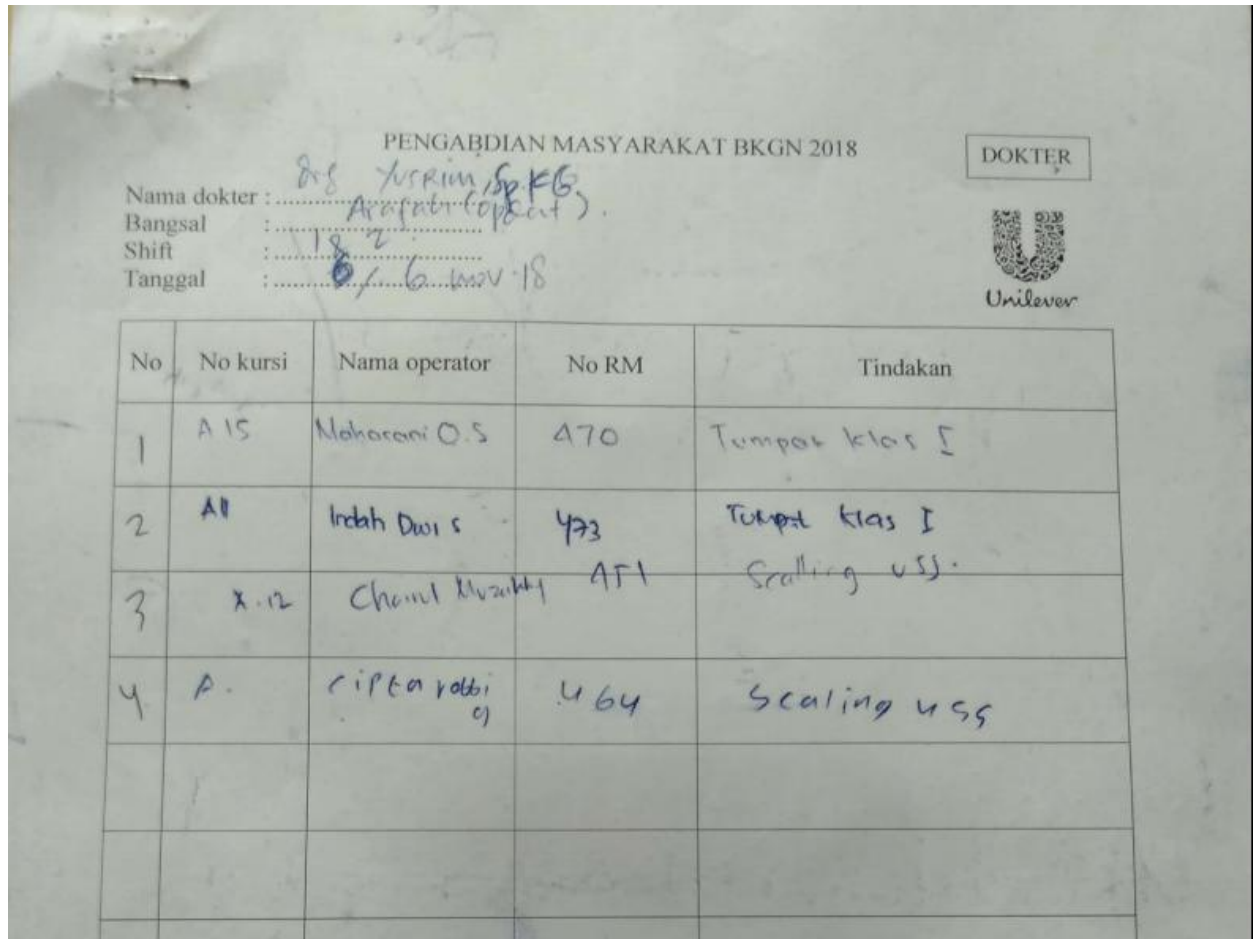 PENGABDIAN MASYARAKAT BKGN 2018
DOKTER
Nama dokter : drg Yusrini, Sp.KG
Bangsal : Arafah
Shift : 1 & 2
Tanggal : 6 nov 18
Unilever
No No kursi Nama operator No RM Tindakan
1 A 15 Maharani O.S 470 Tumpat klas I
2 A11 Indah Dwi S 473 Tumpat Klas I
3 12 Scalling USS.
4 A. Cipta robbi 464 Scaling USS